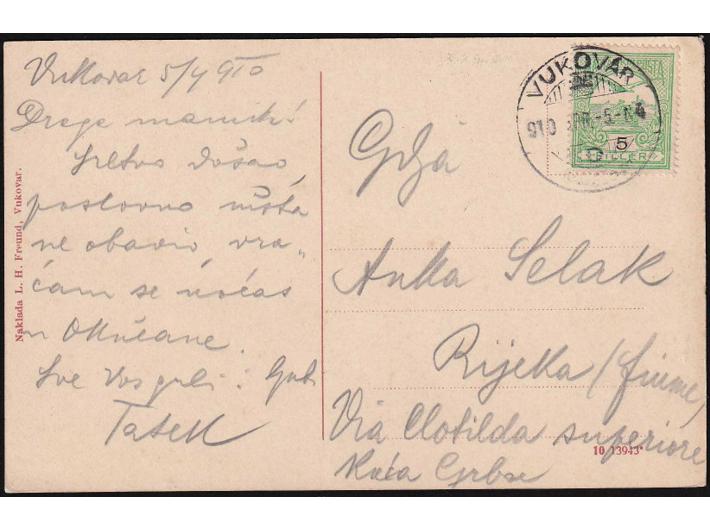 Vukovar 5/4 910
Drage mamick!
Sretno došao,
poslovno ništa
ne obavio, vra-
ćam se noćas
u Okučane.
Sve Vas grli i ljub
Tatek
Naklada L. H. Freund, Vukovar.
VUKOVÁR
910 ÁPR.-5.-
5
FILLÉR
Gdja
Anka Selak
Rijeka (fiume)
Via Clotilda superiore
Kuća Grbac
10 13943